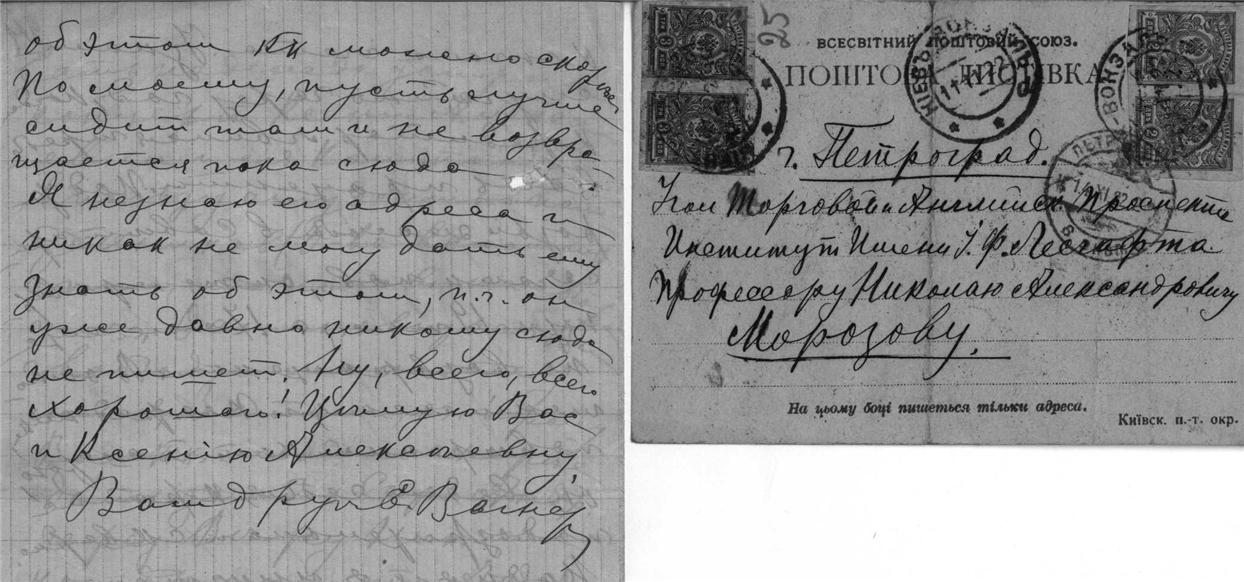 об этом кк можно скорѣе.
По моему, пусть лучше
сидит там и не возвра-
щается пока сюда
Я не знаю его адреса и
никак не могу дать ему
знать об этом, п.ч. он
уже давно никому сюда
не пишет. Ну, всего, всего
хорошаго! Цѣлую Вас
и Ксенію Алексѣевну,
Ваш друг Е. Вагнер
25
ВСЕСВІТНИЙ ПОШТОВИЙ СОЮЗ.
ПОШТОВА ЛИСТІВКА
КІЕВЪ-ВОКЗАЛЪ
11.11.22
г. Петроград.
Угол Торговой и Английск. Проспекта
Институт Имени П. Ф. Лесгафта.
Профессору Николаю Александровичу
Морозову.
На цьому боці пишеться тільки адреса.
Київск. п.-т. окр.